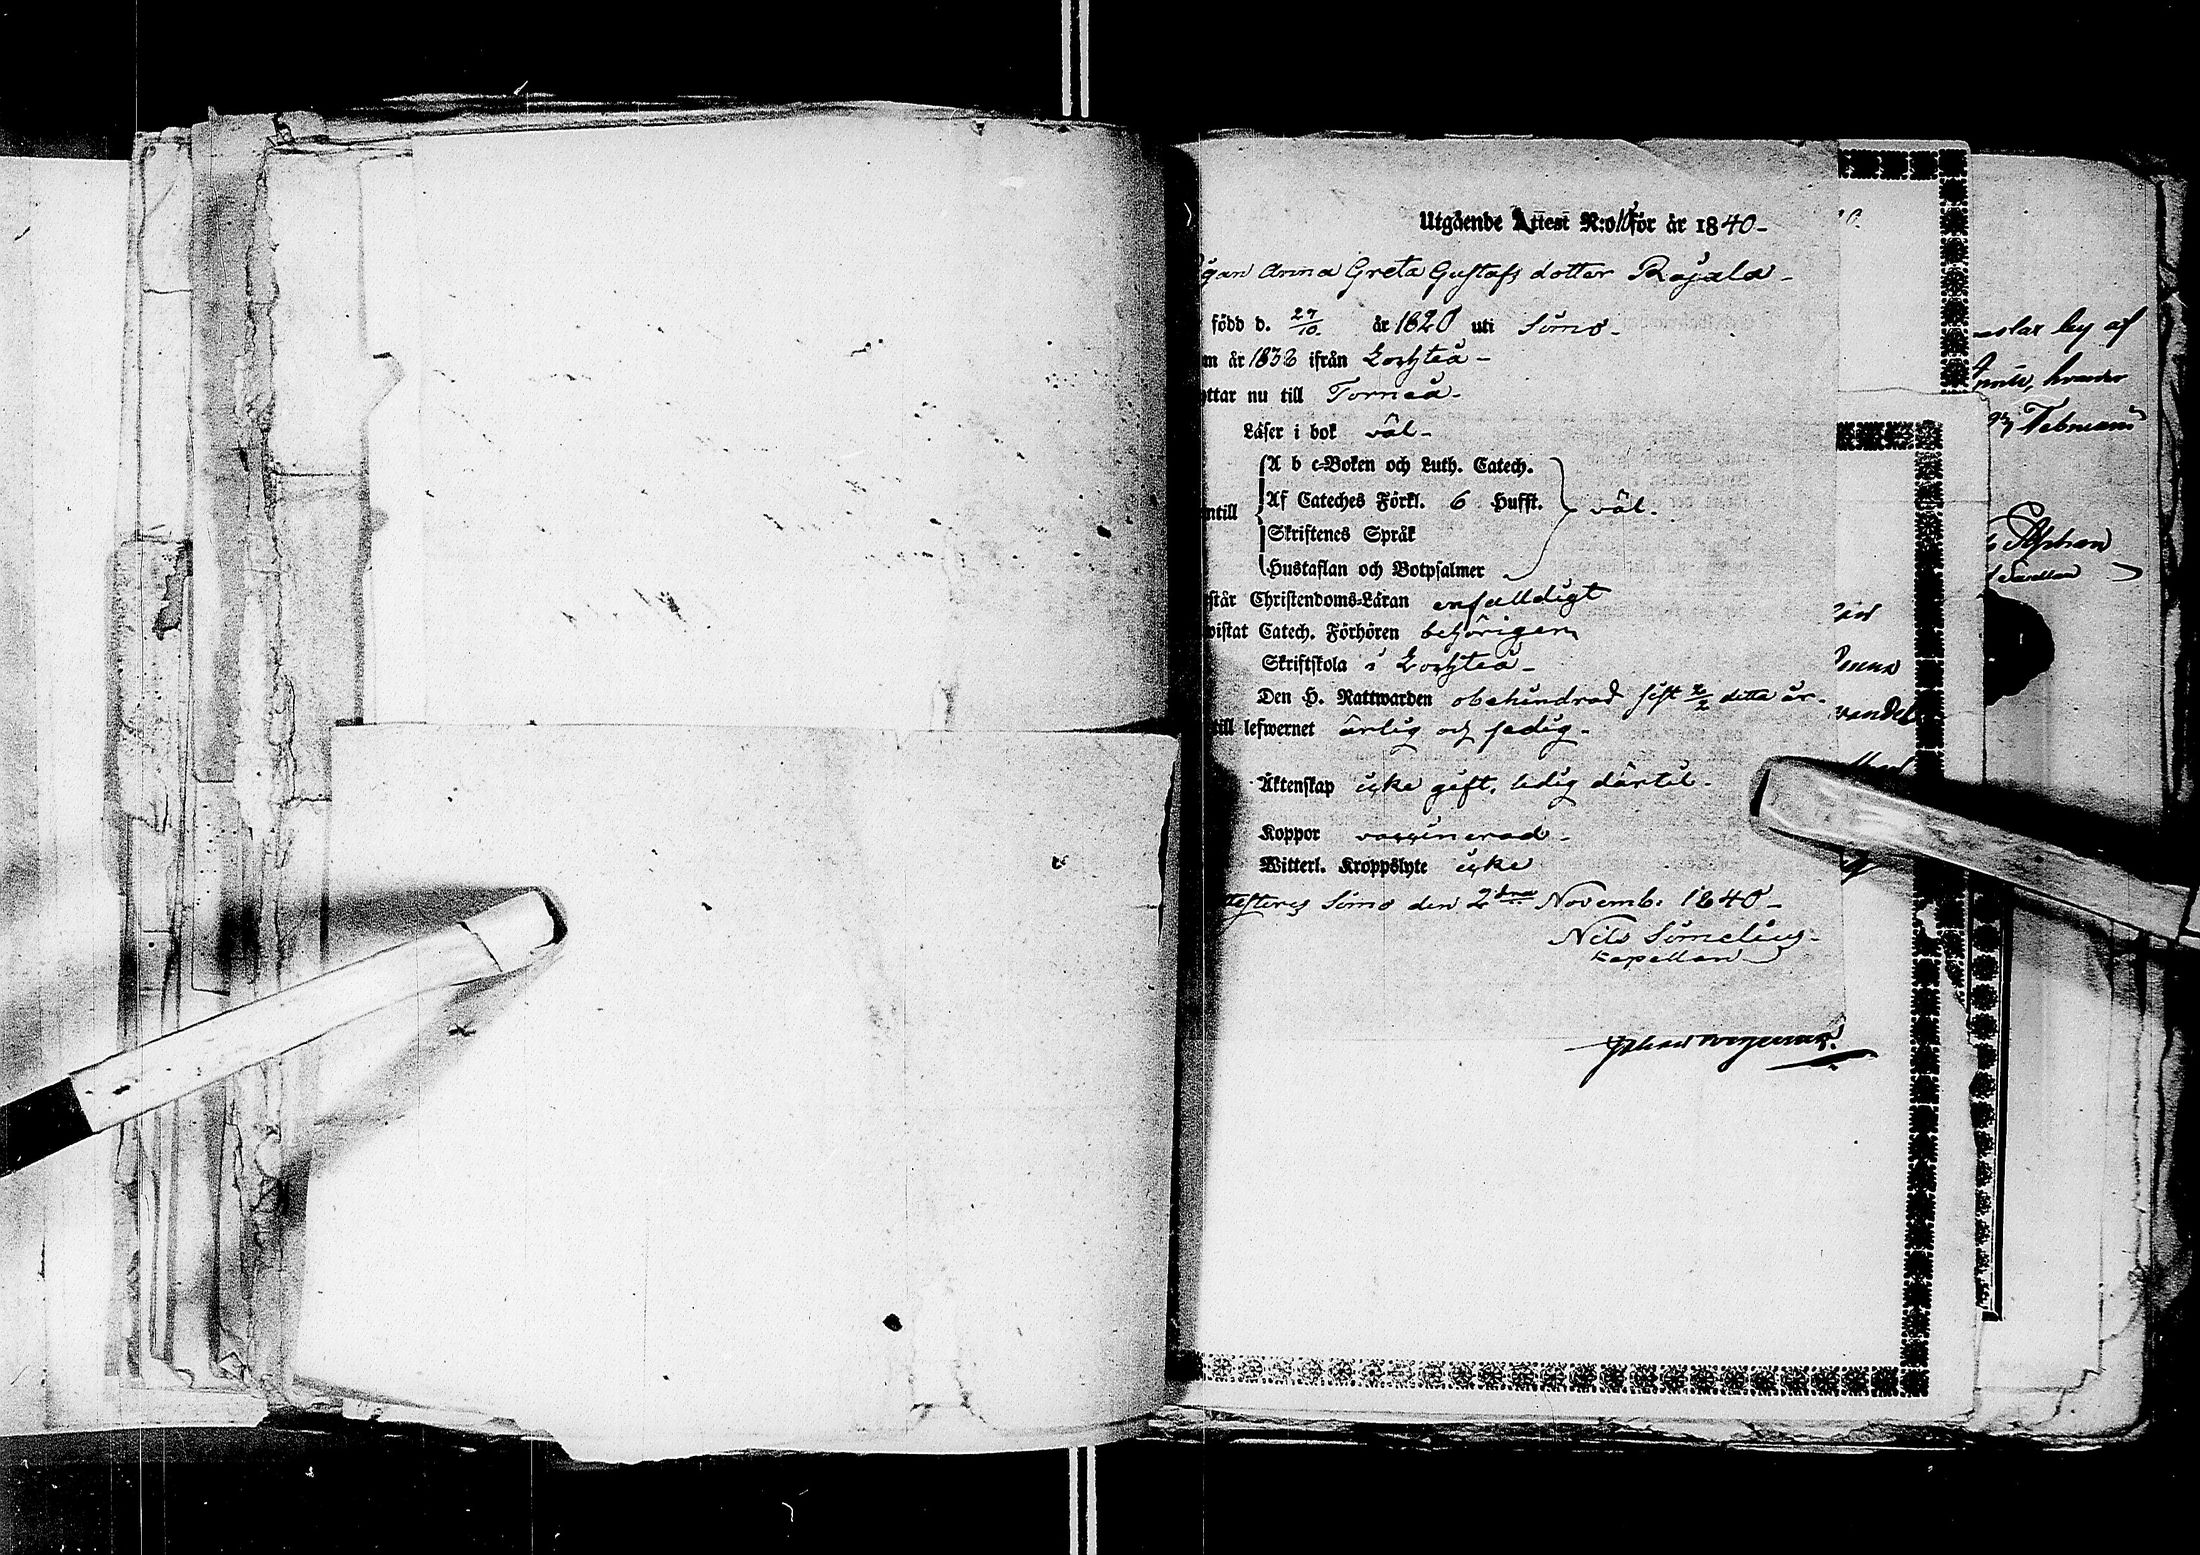 Utgående Attest N:o 10 för år 1840-
Pigan Anna Greta Gustafsdotter Rajala-
född d. 27/10. år 1820 uti Simo-
om år 1838 ifrån Lochteå-
yttar nu till Torneå-
Läser i bok väl-
A b c-Boken och Luth. Catech.
Af Cateches Förkl. 6 Hufst.
ntill väl-
Skriftenes Språk
Hustaflan och Botpsalmer
rstår Christendoms-Läran enfalldigt
vistat Catech. Förhören behörigen
Skriftskola i Lochteå-
Den H. Nattwarden obehindrad sist 2/2 detta år-
till lefwernet ärlig och sedig-
Äktenskap icke gift, ledig därtil-
Koppor vaccinerad-
Witterl. Kroppslyte icke
ttesteres Simo den 2dra Novemb. 1840-
Nils Simelius-
Kapellan
0.
by af
hvarder
Stephan
Capellan
wandel
Johan